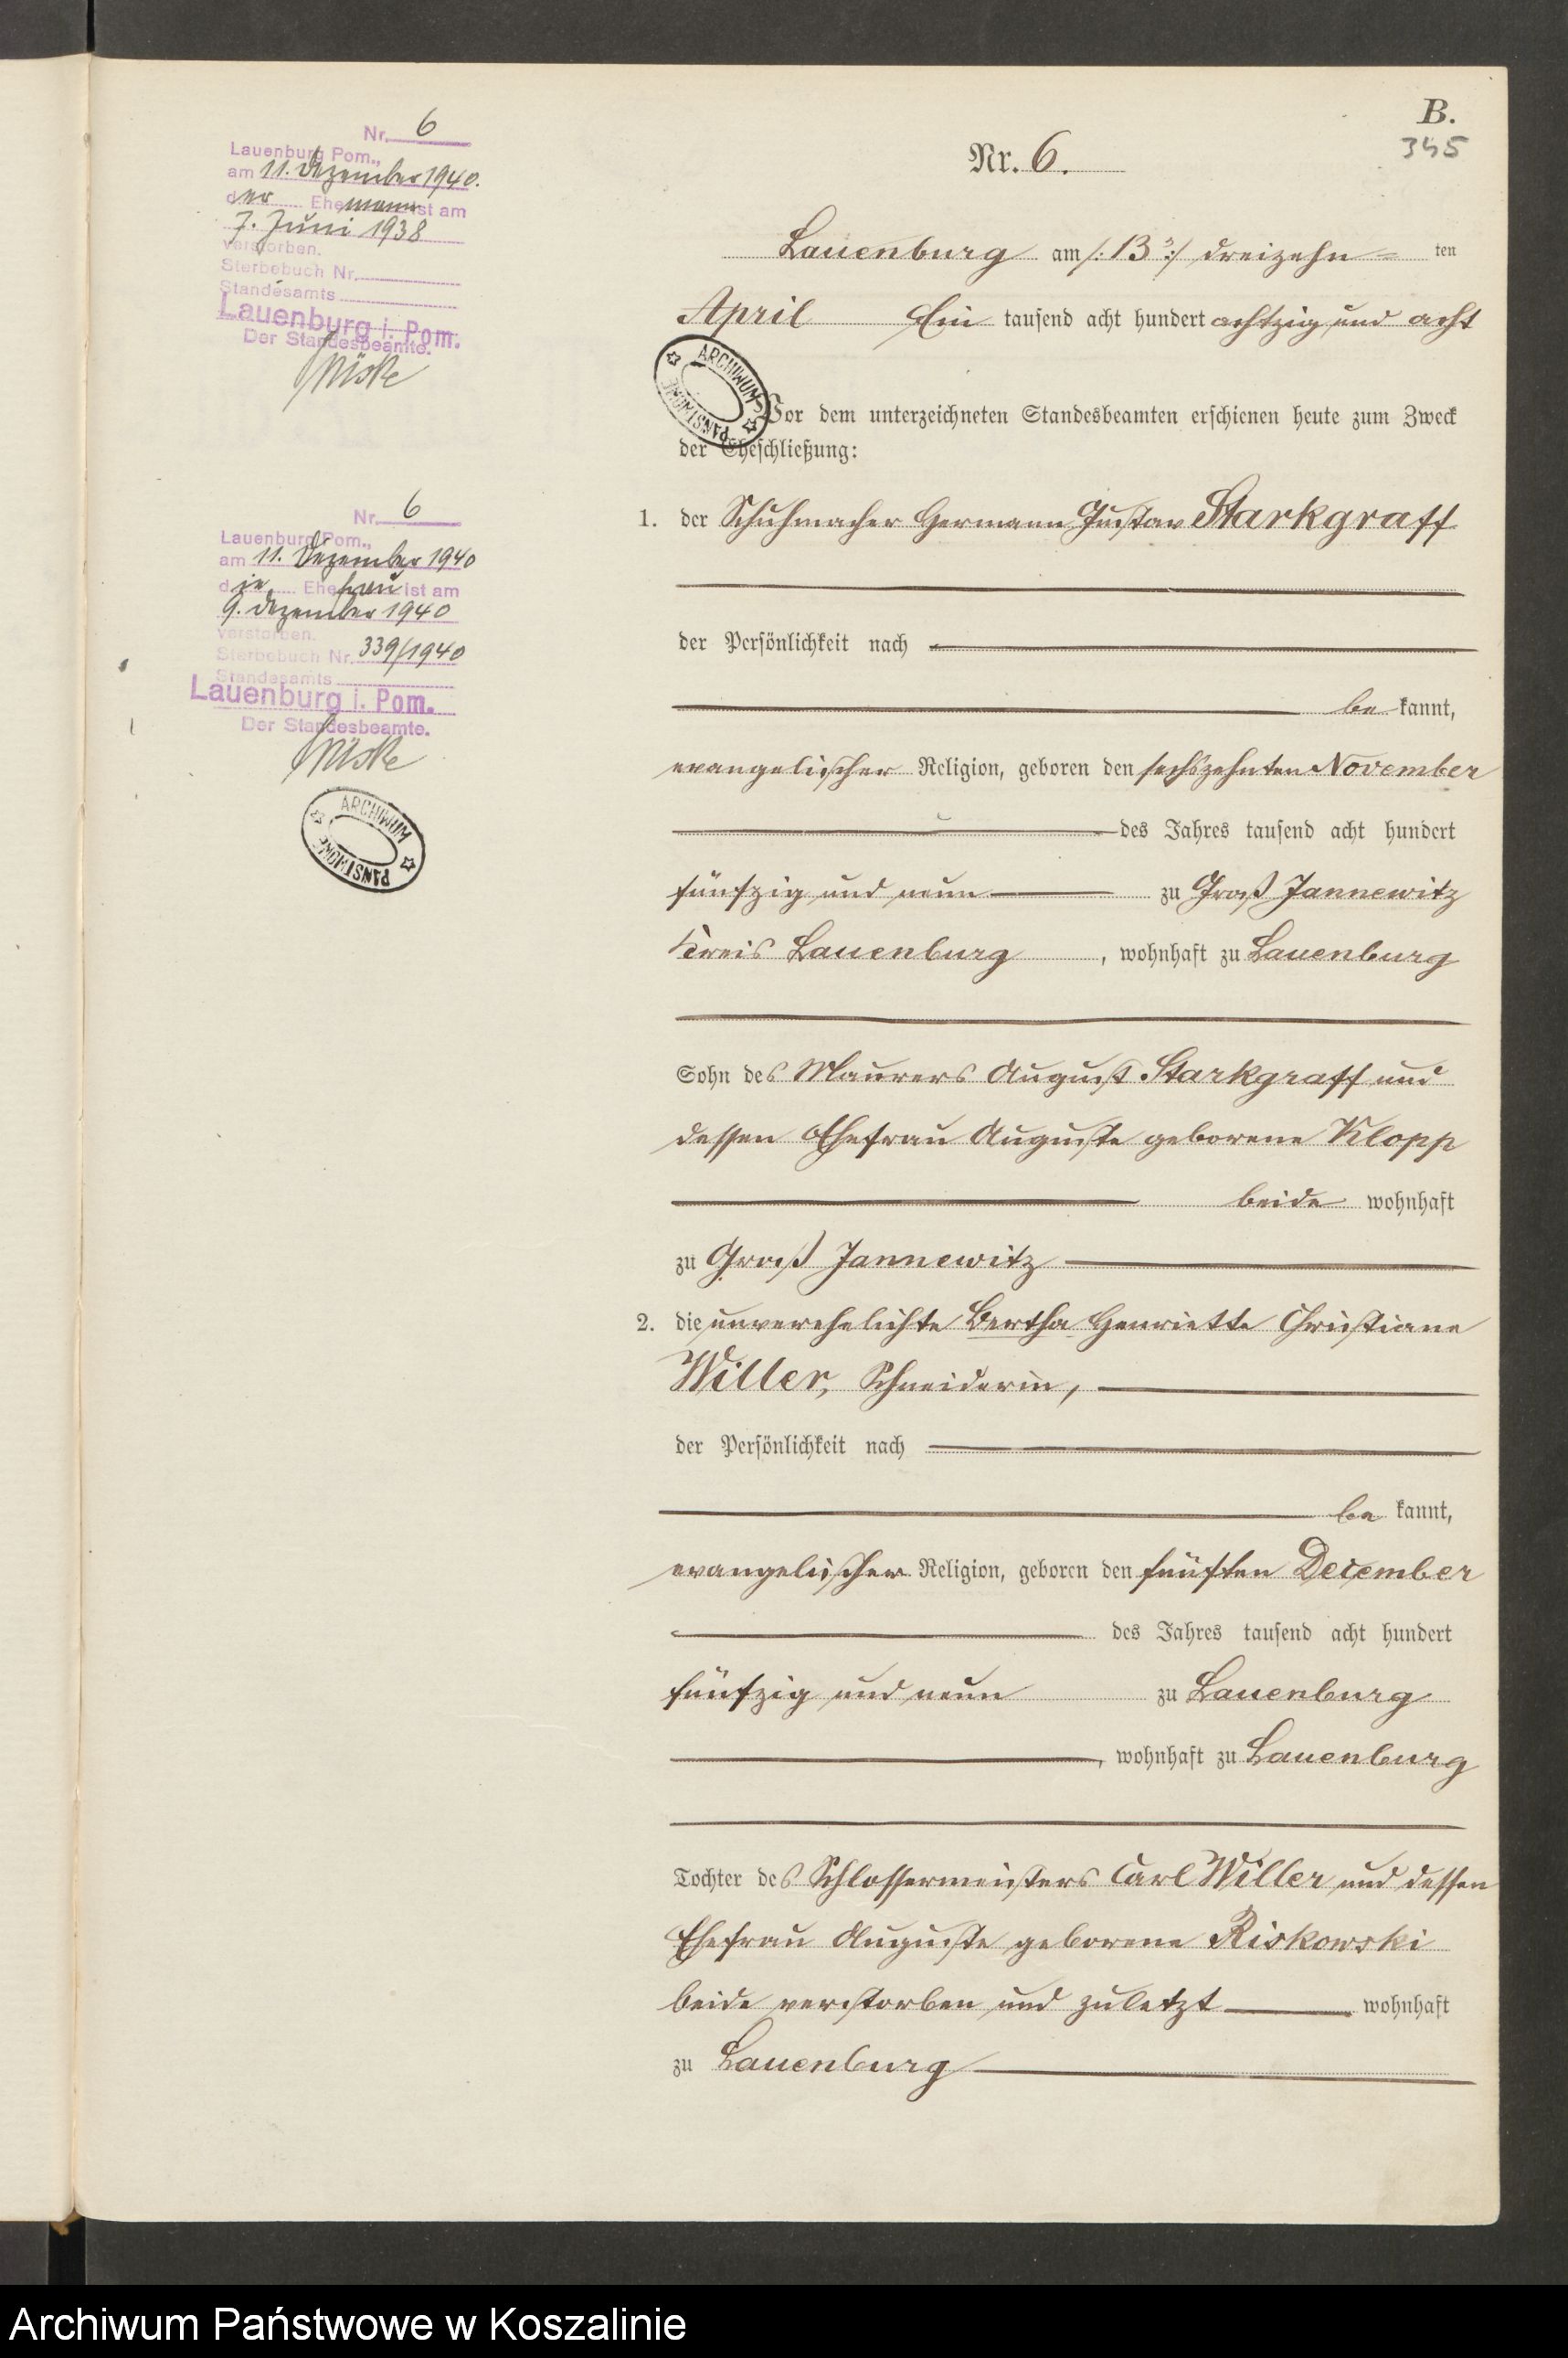 B.
345
Nr. 6.
Lauenburg am /: 13 :/ dreizehn = ten
April Ein tausend acht hundert achtzig und acht
Vor dem unterzeichneten Standesbeamten erschienen heute zum Zweck
der Eheschließung:
1. der Schuhmacher Hermann Gustav Starkgraff
der Persönlichkeit nach
be kannt,
evangelischer Religion, geboren den sechszehnten November
des Jahres tausend acht hundert
fünfzig und neun zu Groß Jannewitz
Kreis Lauenburg, wohnhaft zu Lauenburg
Sohn des Maurers August Starkgraff und
dessen Ehefrau Auguste geborene Klopp
beide wohnhaft
zu Groß Jannewitz
2. die unverehelichte Bertha Henriette Christiane
Willer, Schneiderin,
der Persönlichkeit nach
be kannt,
evangelischer Religion, geboren den fünften December
des Jahres tausend acht hundert
fünfzig und neun zu Lauenburg
, wohnhaft zu Lauenburg
Tochter des Schlossermeisters Carl Willer und dessen
Ehefrau Auguste geborene Riskowski
beide verstorben und zuletzt wohnhaft
zu Lauenburg
Nr. 6
Lauenburg Pom.,
am 11. Dezember 1940.
der Ehemann ist am
7. Juni 1938
verstorben.
Sterbebuch Nr.
Standesamts
Lauenburg i. Pom.
Der Standesbeamte.
Nr. 6
Lauenburg Pom.,
am 11. Dezember 1940
die Ehefrau ist am
9. Dezember 1940
verstorben.
Sterbebuch Nr. 339/1940
Standesamts
Lauenburg i. Pom.
Der Standesbeamte.
ARCHIWUM PAŃSTWOWE
ARCHIWUM PAŃSTWOWE
Archiwum Państwowe w Koszalinie